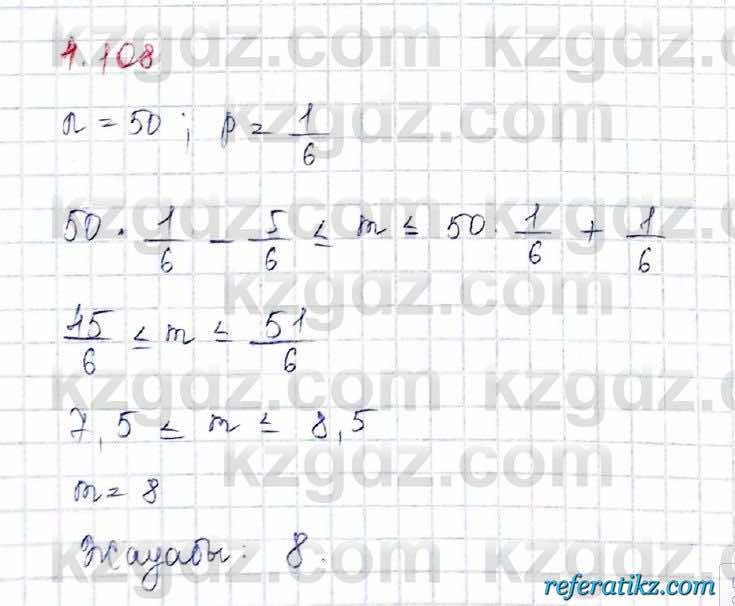 4.108
n = 50 ; p = 1/6
50 · 1/6 - 5/6 ≤ m ≤ 50 · 1/6 + 1/6
45/6 ≤ m ≤ 51/6
7,5 ≤ m ≤ 8,5
m = 8
Жауабы: 8.
kzgdz.com
kzgdz.com
kzgdz.com
kzgdz.com
kzgdz.com
kzgdz.com
referatikz.com